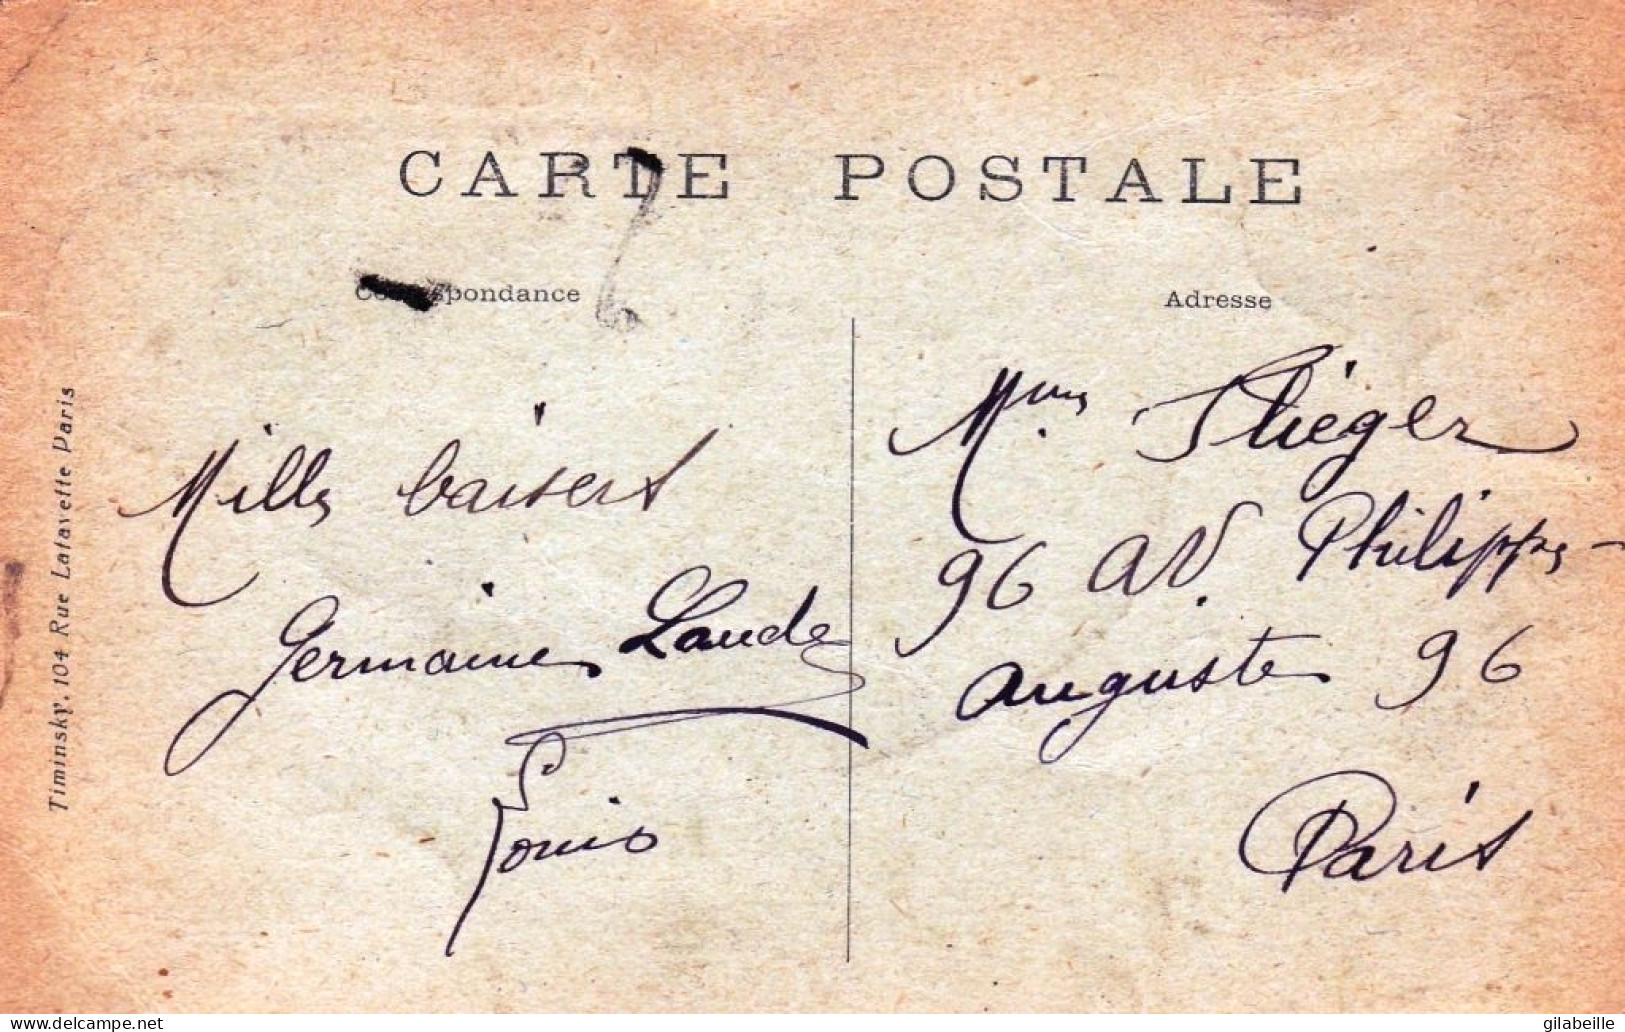 CARTE POSTALE
Correspondance
Adresse
Mille baisers
Germaine Laude
Louis
Mme Stiéger
96 av. Philippe-
auguste 96
Paris
Timinsky, 104 Rue Lafayette Paris
www.delcampe.net
gilabeille